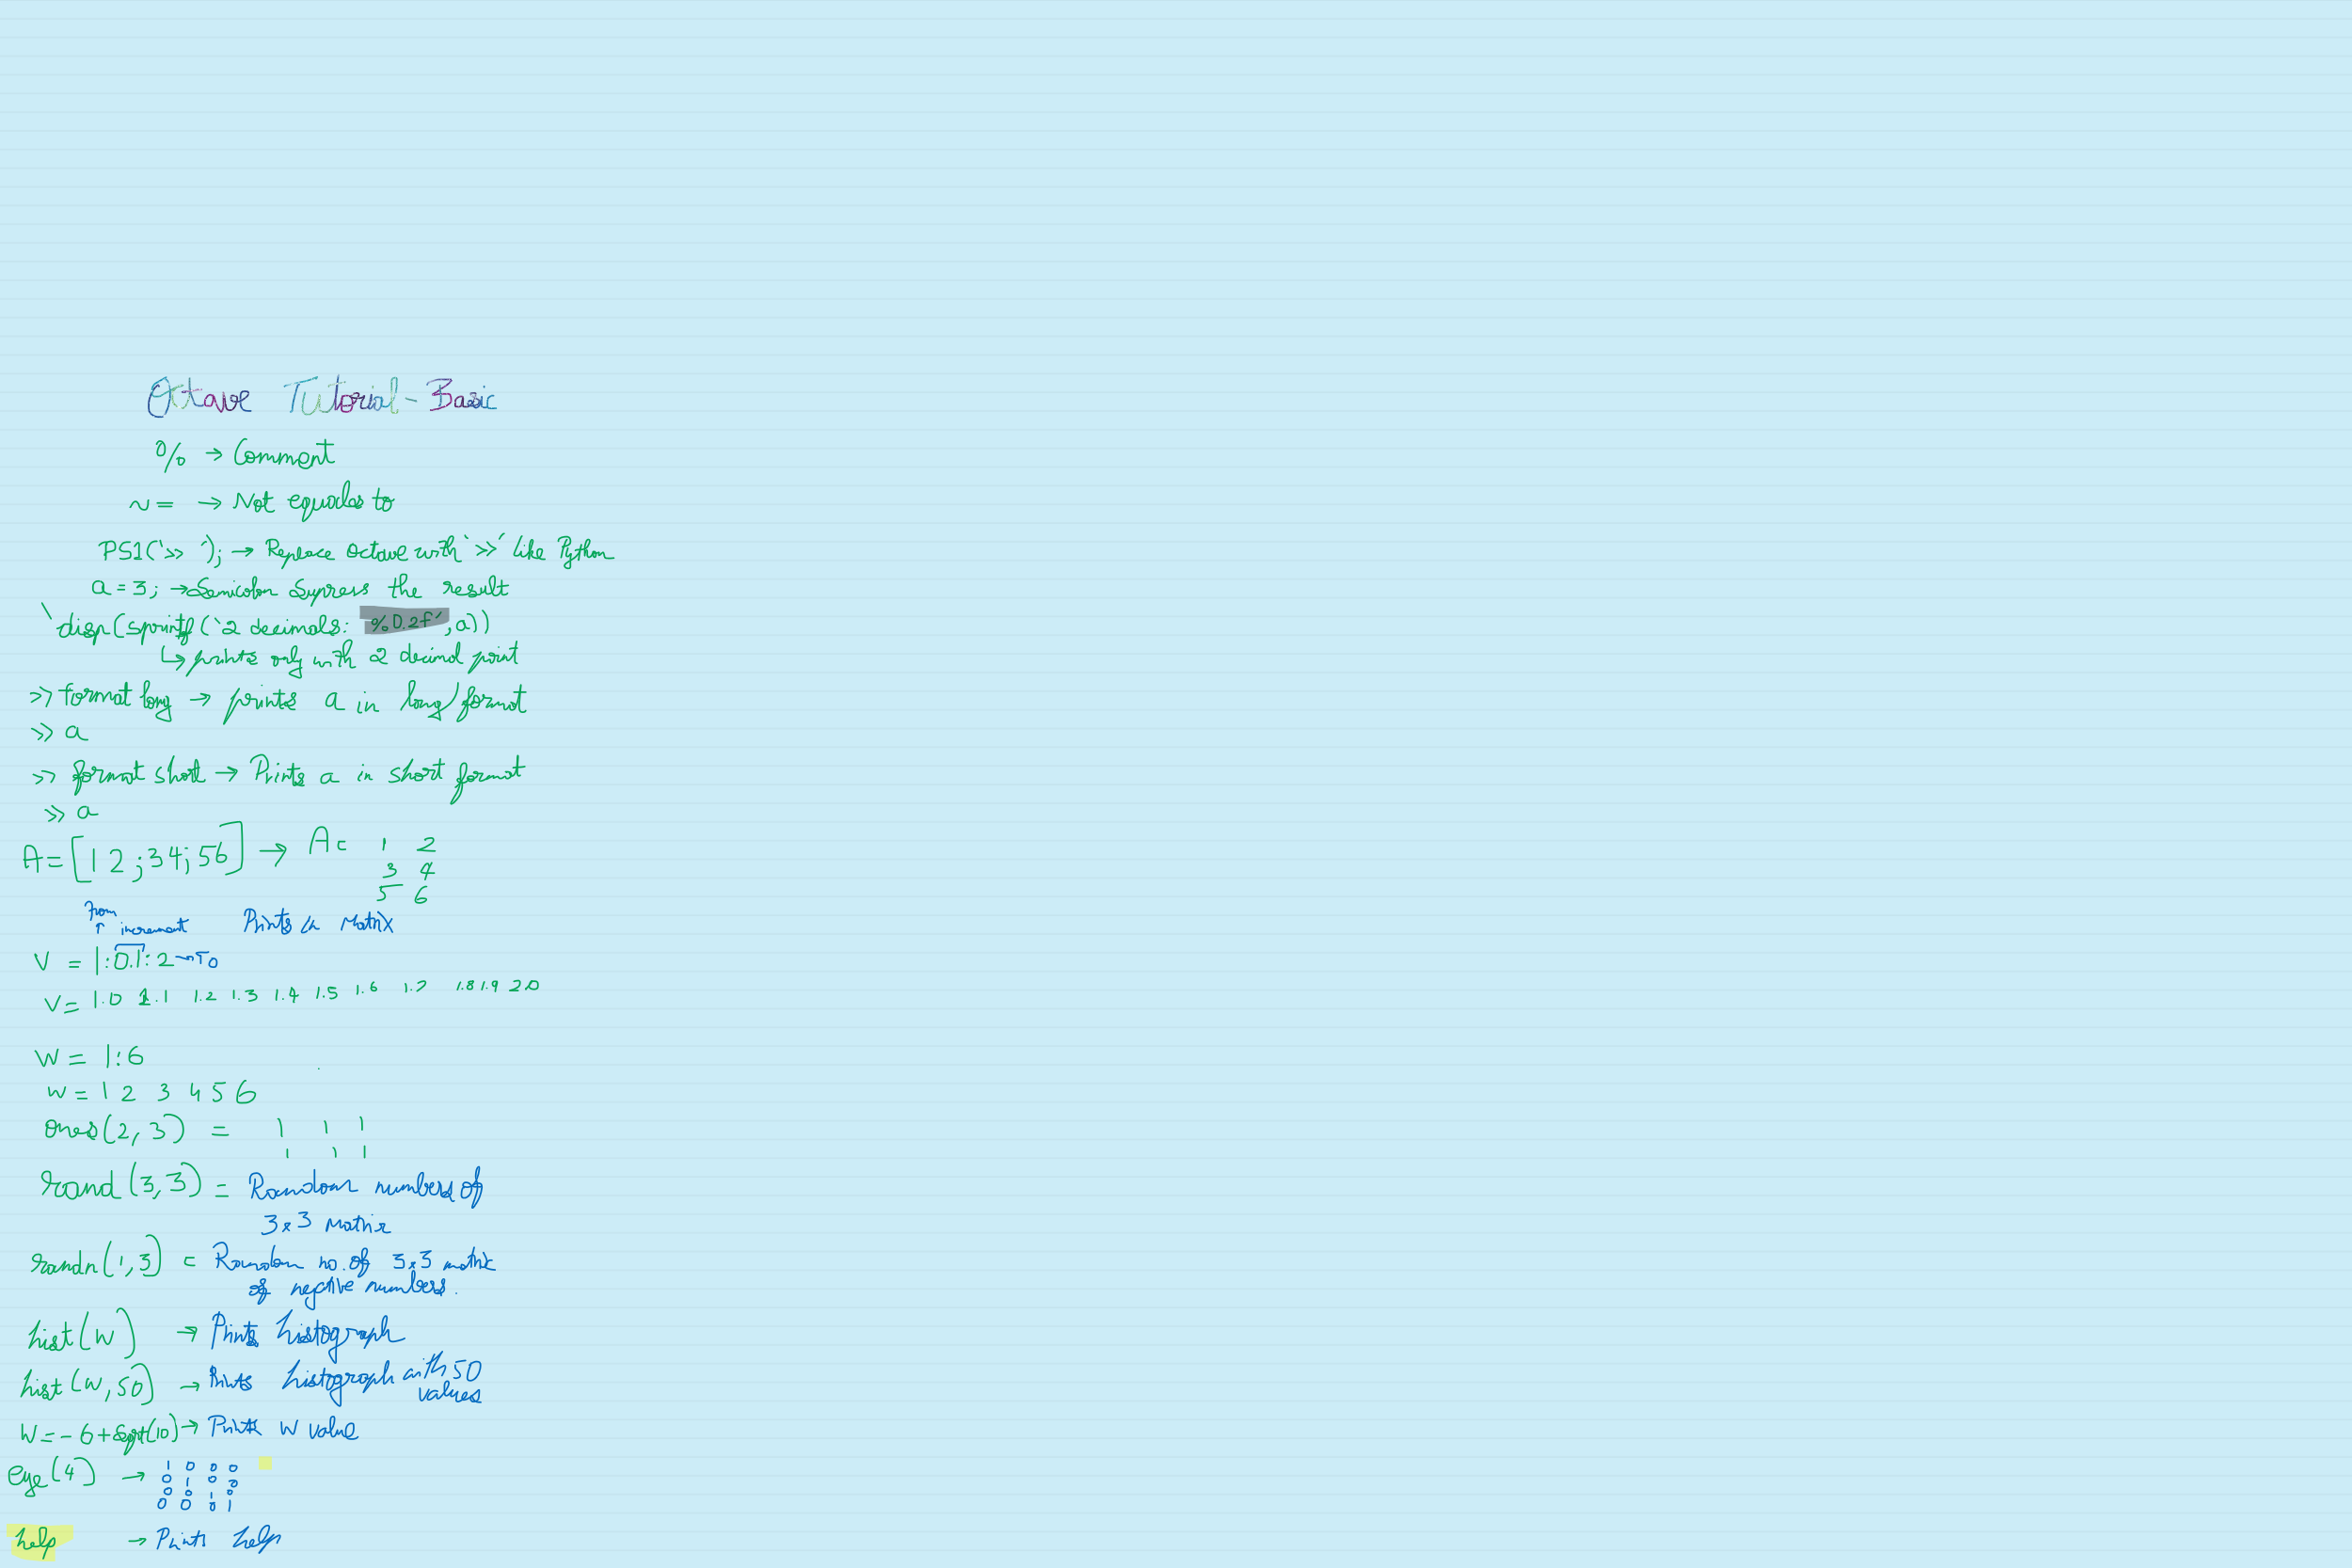 Octave Tutorial - Basic
% → Comment
~= → Not equales to
PS1('>> '); → Replace Octave with '>>' like Python
a = 3; → Semicolon Supress the result
disp(sprintf('2 decimals: %0.2f', a))
↳ prints only with 2 decimal point
>> format long → prints a in long format
>> a
>> format short → Prints a in short format
>> a
A = [1 2; 3 4; 5 6] → A = 1 2
3 4
5 6
from
↑ increment Prints a Matrix
V = 1:0.1:2 → To
V = 1.0 1.1 1.2 1.3 1.4 1.5 1.6 1.7 1.8 1.9 2.0
W = 1:6
W = 1 2 3 4 5 6
ones(2,3) = 1 1 1
1 1 1
rand(3,3) = Random numbers of
3x3 Matrix
randn(1,3) = Random no. of 3x3 matrix
of negative numbers.
hist(W) → Prints histograph
hist(W,50) → Prints histograph with 50
values
W = -6 + sqrt(10) → Prints W value
eye(4) → 1 0 0 0
0 1 0 0
0 0 1 0
0 0 0 1
help → Prints help